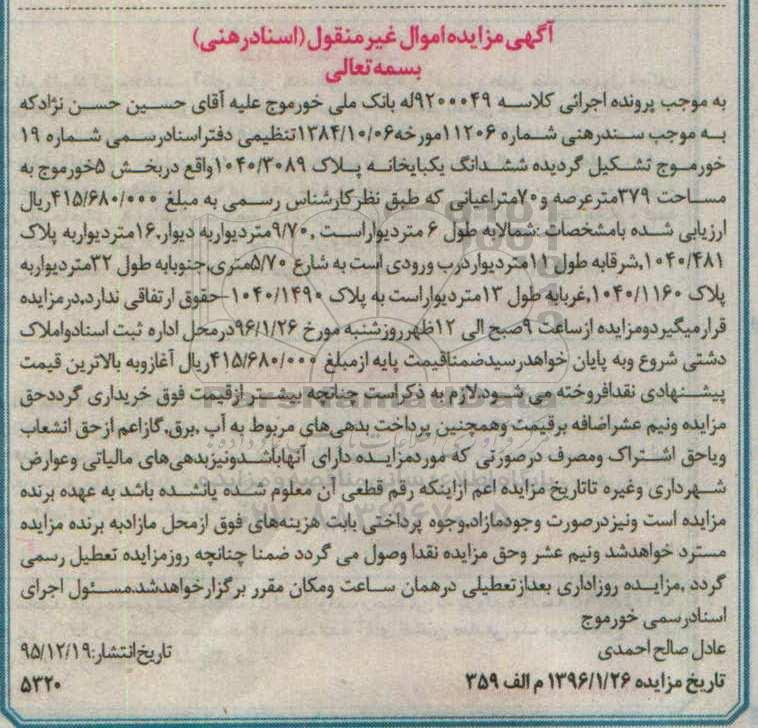 آگهی مزایده اموال غیر منقول (اسناد رهنی)
بسمه تعالی
به موجب پرونده اجرائی کلاسه ۹۲۰۰۰۴۹له بانک ملی خورموج علیه آقای حسین حسن نژادکه
به موجب سندرهنی شماره ۱۱۲۰۶مورخه۱۳۸۴/۱۰/۰۶تنظیمی دفتراسنادرسمی شماره ۱۹
خورموج تشکیل گردیده ششدانگ یکبابخانه پلاک ۱۰۴۰/۳۰۸۹واقع دربخش ۵خورموج به
مساحت ۳۷۹مترعرصه و۷۰متراعیانی که طبق نظرکارشناس رسمی به مبلغ ۴۱۵/۶۸۰/۰۰۰ریال
ارزیابی شده بامشخصات :شمالابه طول ۶ متردیواراست ,۹/۷۰متردیواربه دیوار,۱۶متردیواربه پلاک
۱۰۴۰/۴۸۱,شرقابه طول ۱۱متردیواردرب ورودی است به شارع ۵/۷۰متری,جنوبابه طول ۳۲متردیواربه
پلاک ۱۰۴۰/۱۱۶۰,غربابه طول ۱۳متردیواراست به پلاک ۱۰۴۰/۱۴۹۰-حقوق ارتفاقی ندارد,درمزایده
قرارمیگیردومزایده ازساعت ۹صبح الی ۱۲ظهرروزشنبه مورخ ۹۶/۱/۲۶درمحل اداره ثبت اسنادواملاک
دشتی شروع وبه پایان خواهدرسیدضمناقیمت پایه ازمبلغ ۴۱۵/۶۸۰/۰۰۰ریال آغازوبه بالاترین قیمت
پیشنهادی نقدافروخته می شود,لازم به ذکراست چنانچه بیشترازقیمت فوق خریداری گرددحق
مزایده ونیم عشراضافه برقیمت وهمچنین پرداخت بدهی‌های مربوط به آب ,برق,گازاعم ازحق انشعاب
ویاحق اشتراک ومصرف درصورتی که موردمزایده دارای آنهاباشدونیزبدهی‌های مالیاتی وعوارض
شهرداری وغیره تاتاریخ مزایده اعم ازاینکه رقم قطعی آن معلوم شده یانشده باشد به عهده برنده
مزایده است ونیزدرصورت وجودمازاد,وجوه پرداختی بابت هزینه‌های فوق ازمحل مازادبه برنده مزایده
مسترد خواهدشد ونیم عشر وحق مزایده نقدا وصول می گردد ضمنا چنانچه روزمزایده تعطیل رسمی
گردد ,مزایده روزاداری بعدازتعطیلی درهمان ساعت ومکان مقرر برگزارخواهدشد.مسئول اجرای
اسنادرسمی خورموج
عادل صالح احمدی
تاریخ انتشار:۹۵/۱۲/۱۹
تاریخ مزایده ۱۳۹۶/۱/۲۶ م الف ۳۵۹
۵۳۲۰
ParsNamadData